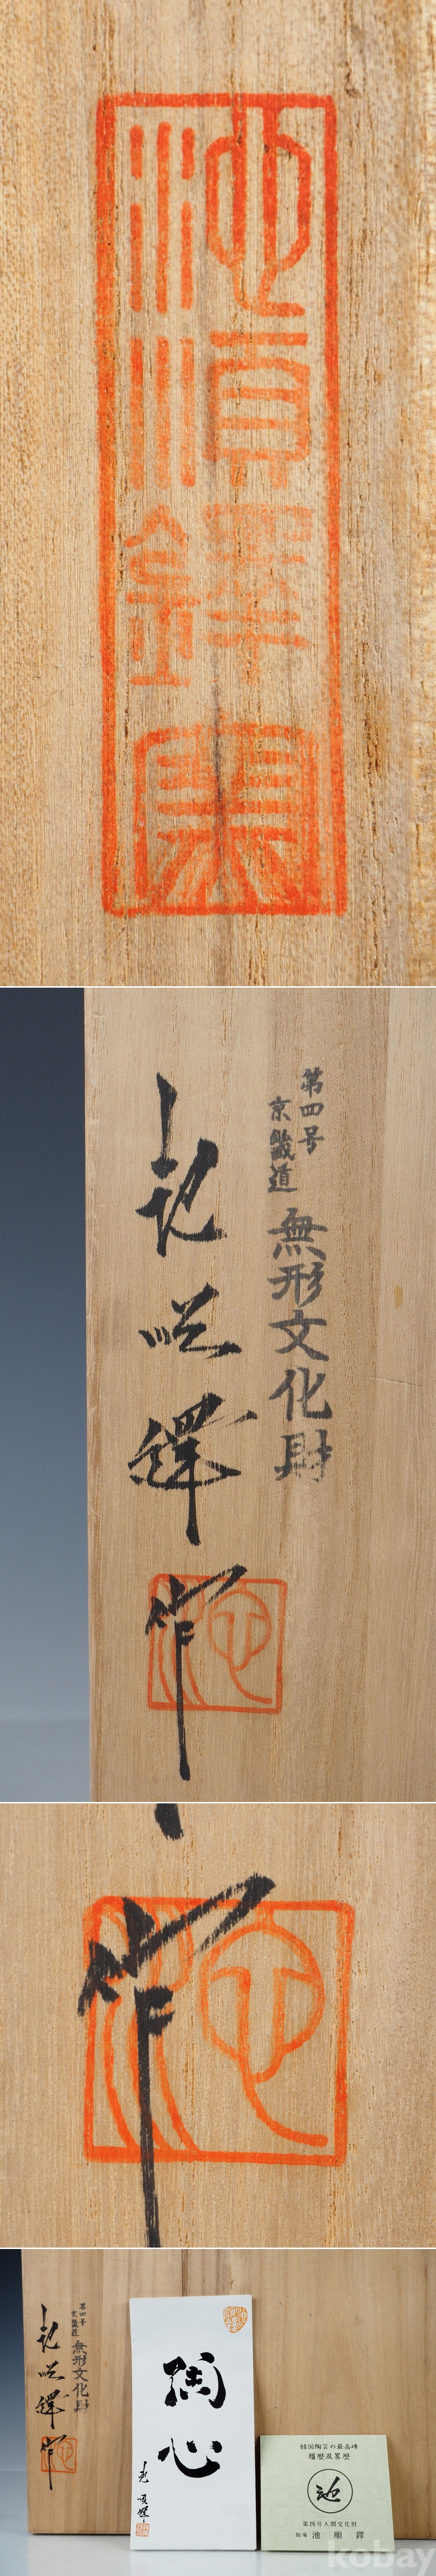 池順鐸窯
第四号
京畿道
無形文化財
池順鐸
作
池
作
池
第四号
京畿道
無形文化財
池順鐸
作
陶心
池順鐸
韓国陶芸の最高峰
履歴及畧歴
池
第四号人間文化財
陶庵 池 順 鐸
kobay